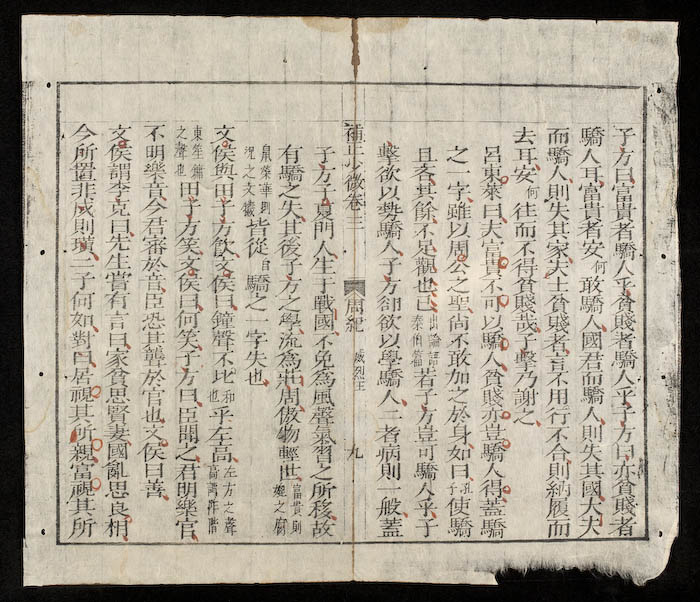 子方曰富貴者驕人乎貧賤者驕人乎子方曰亦貧賤者
驕人耳富貴者安何敢驕人國君而驕人則失其國大夫
而驕人則失其家夫士貧賤者言不用行不合則納履而
去耳安何往而不得貧賤哉子擊乃謝之
呂東萊曰夫富貴不可以驕人貧賤亦豈驕人得蓋驕
之一字雖以周公之聖尚不敢加之於身如曰孔子使驕
且吝其餘不足觀也已出論語泰伯篇若子方豈可驕人乎子
擊欲以勢驕人子方卻欲以學驕人二者病則一般蓋
補正少微卷二 周紀 威烈王 九
子方子夏門人生于戰國不免為風聲氣習之所移故
有驕之失其後子方之學流為莊周傲物輕世富貴則
鼠榮華則況之文繡皆從自驕之一字失也
文侯與田子方飲文侯曰鐘聲不比和也乎左高左方之聲高蓋作階
東笙鏞之聲也田子方笑文侯曰何笑子方曰臣聞之君明樂官
不明樂音今君審於音臣恐其聾於官也文侯曰善
文侯謂李克曰先生嘗有言曰家貧思賢妻國亂思良相
今所置非成則璜二子何如對曰居視其所親富視其所